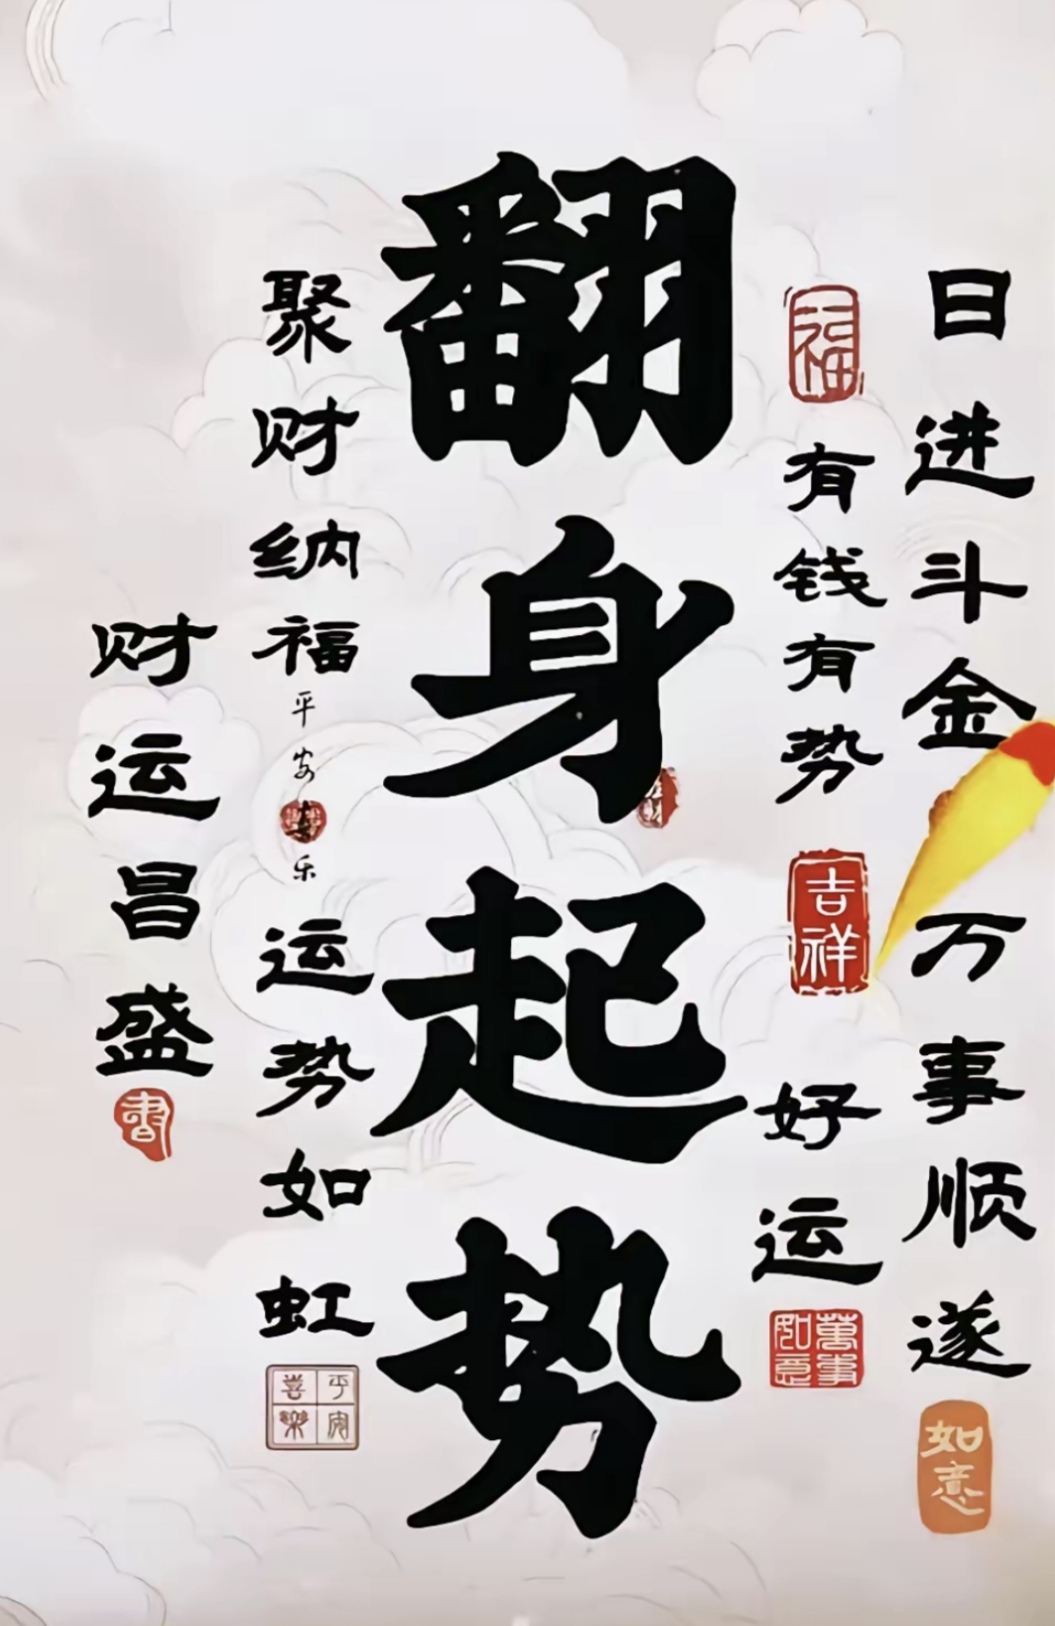 日进斗金万事顺遂
如意
福
有钱有势
吉祥
好运
萬事如意
翻身起势
聚财纳福
平安喜乐
运势如虹
平安喜樂
财运昌盛
書